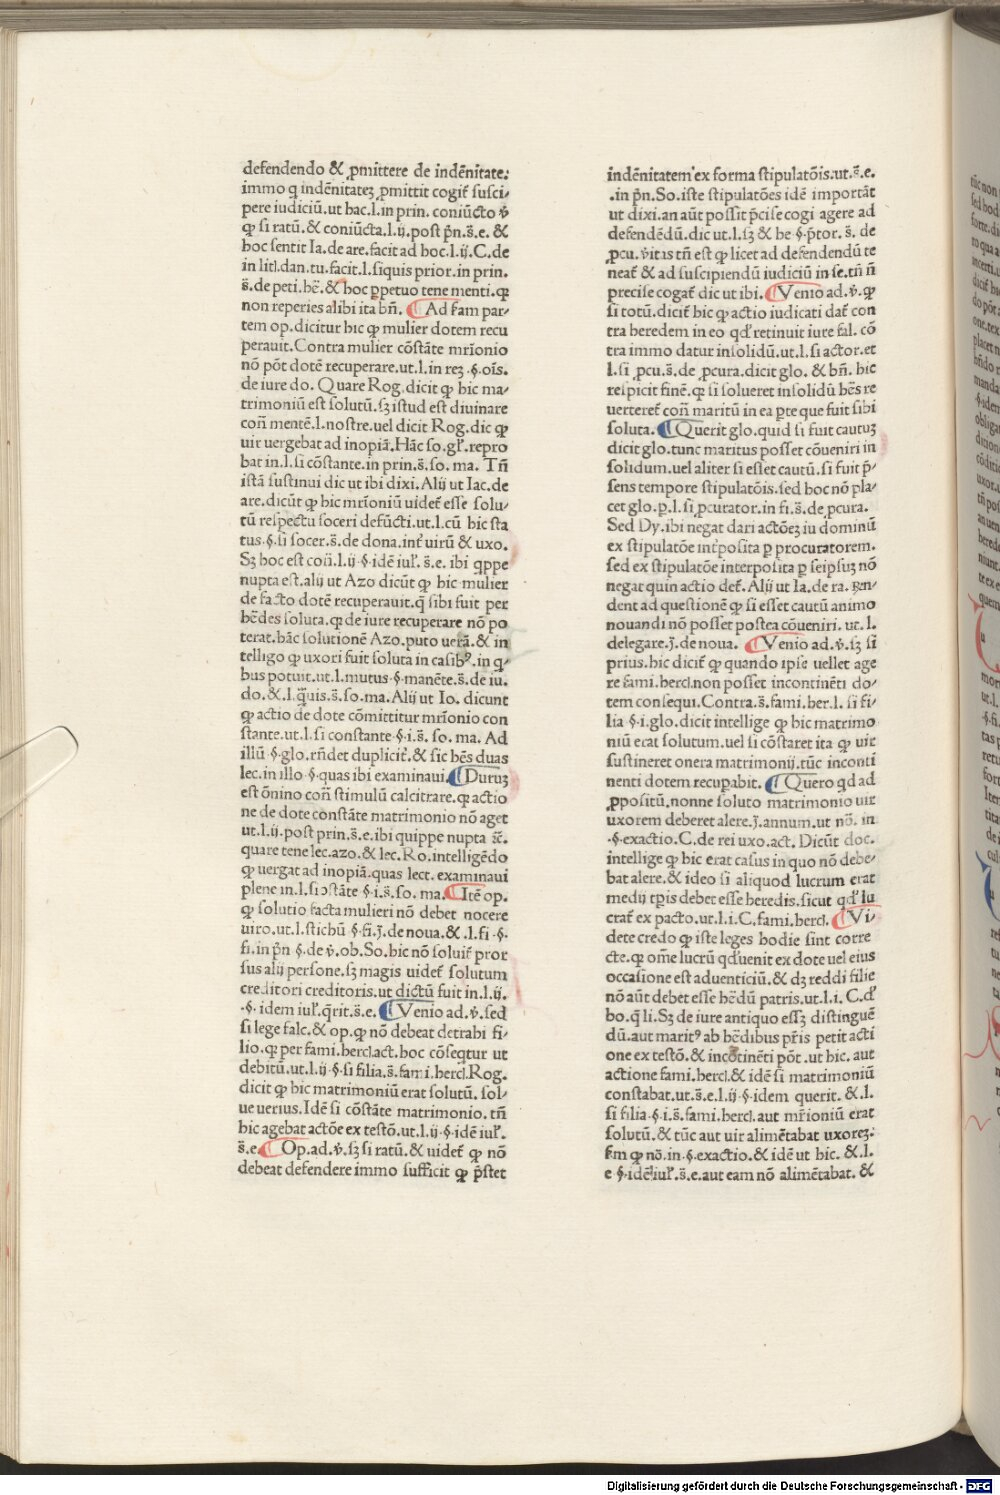 defendendo & ꝓmittere de indēnitate:
immo q̄ indēnitateʒ ꝓmittit cogit̄ susci⸗
pere iudiciū.ut hac.l.in prin. coniūcto v̄
ꝙ si ratū.& coniūcta.l.ij.post p̄n.s̄.e. &
hoc sentit Ia.de are.facit ad hoc.l.ij.C.de
in liti.dan.tu.facit.l.siquis prior.in prin.
s̄.de peti.hē.& hoc ꝑpetuo tene menti.ꝙ
non reperies alibi ita bn̄. ¶ Ad fam par⸗
tem op.dicitur hic ꝙ mulier dotem recu
perauit.Contra mulier cōstāte mr̄ionio
nō pōt dotē recuperare.ut.l.in reʒ.§.oīs.
de iure do. Quare Rog.dicit ꝙ hic ma⸗
trimoniū est solutū.sʒ istud est diuinare
con̄ mentē.l.nostre.uel dicit Rog.dic ꝙ
uir uergebat ad inopiā.Hāc so.gl̄.repro
bat in.l.si cōstante.in prin.s̄.so. ma. Tn̄
istā sustinui dic ut ibi dixi.Alij ut Iac.de
are.dicūt ꝙ hic mr̄ioniū uidet̄ esse solu⸗
tū respectu soceri defūcti.ut.l.cū hic sta
tus.§.si socer.s̄.de dona.int̄ uirū & uxo.
Sʒ hoc est con̄.l.ij.§.idē iul̄. s̄.e. ibi q̄ppe
nupta est.alij ut Azo dicūt ꝙ hic mulier
de facto dotē recuperauit.q̄ sibi fuit per
hēdes soluta.ꝙ de iure recuperare nō po
terat.hāc solutionē Azo.puto uerā.& in
telligo ꝙ uxori fuit soluta in casibꝰ.in q⸗
bus potuit.ut.l.mutus.§.manēte.s̄.de iu.
do.&.l.q̄uis.s̄.so.ma.Alij ut Io. dicunt
ꝙ actio de dote cōmittitur mr̄ionio con
stante.ut.l.si constante.§.i.s̄. so. ma. Ad
illū.§.glo.rn̄det duplicit̄. & sic hēs duas
lec.in illo.§.quas ibi examinaui.¶ Duruʒ
est ōnino con̄ stimulū calcitrare.ꝙ actio
ne de dote constāte matrimonio nō aget
ut.l.ij.post prin.s̄.e.ibi quippe nupta ⁊c̄.
quare tene lec.azo.& lec. Ro.intelligēdo
ꝙ uergat ad inopiā.quas lect. examinaui
plene in.l.si ɔstāte.§.i.s̄.so. ma.¶ Itē op.
ꝙ solutio facta mulieri nō debet nocere
uiro.ut.l.stichū.§.fi.j̄.de noua.&.l.fi.§.
fi.in p̄n.§.de v̄.ob.So.hic nō soluit̄ pror
sus alij persone.sʒ magis uidet̄ solutum
creditori creditoris.ut dictū fuit in.l.ij.
.§.idem iul̄.q̄rit.s̄.e. ¶ Venio ad.v̄.sed
si lege falc.& op.ꝙ nō debeat detrahi fi⸗
lio.ꝙ per fami.herci.act.hoc cōseq̄tur ut
debitū.ut.l.ij.§.si filia.s̄.fami.herci.Rog.
dicit ꝙ hic matrimoniū erat solutū. sol⸗
ue uerius.Idē si cōstāte matrimonio. tn̄
hic agebat actōe ex testō.ut.l.ij.§.idē iul̄.
s̄.e.¶ Op.ad.v̄.sʒ si ratū.& uidet̄ ꝙ nō
debeat defendere immo sufficit ꝙ p̄stet
indēnitatem ex forma stipulatōis.ut.s̄.e.
.in p̄n.So.iste stipulatōes idē importāt
ut dixi.an aūt possit p̄cise cogi agere ad
defendēdū.dic ut.l.sʒ & he.§.p̄tor. s̄. de
ꝓcu. v̄itas tn̄ est ꝙ licet ad defendendū te
neat̄ & ad suscipiendū iudiciū in se.tn̄ n̄
precise cogat̄ dic ut ibi. ¶ Venio ad.v̄. ꝙ
si totū.dicit̄ hic ꝙ actio iudicati dat̄ con
tra heredem in eo qđ retinuit iure fal. cō
tra immo datur insolidū.ut.l.si actor.et
l.si ꝓcu.s̄.de ꝓcura.dicit glo. & bn̄. hic
respicit finē.ꝙ si solueret insolidū hēs re
uerteret̄ con̄ maritū in ea ꝑte que fuit sibi
soluta. ¶ Querit glo.quid si fuit cautuʒ
dicit glo.tunc maritus posset cōueniri in
solidum.uel aliter si esset cautū.si fuit p̄⸗
sens tempore stipulatōis.sed hoc nō pla⸗
cet glo.p.l.si ꝓcurator.in fi.s̄.de ꝓcura.
Sed Dy.ibi negat dari actōeʒ iu dominū
ex stipulatōe int̄posita ꝑ procuratorem.
sed ex stipulatōe interposita ꝑ seipsuʒ nō
negat quin actio det̄. Alij ut Ia.de ra. rn̄⸗
dent ad questionē ꝙ si esset cautū animo
nouandi nō posset postea cōueniri. ut. l.
delegare.j̄.de noua. ¶ Venio ad.v̄.sʒ si
prius.hic dicit̄ ꝙ quando ipse uellet age
re fami.herci.non posset incontinēti do⸗
tem consequi.Contra.s̄.fami.her.l. si fi⸗
lia.§.i.glo.dicit intellige ꝙ hic matrimo
niū erat solutum.uel si cōstaret ita ꝙ uir
sustineret onera matrimonij.tūc inconti
nenti dotem recuꝑabit. ¶ Quero qd ad
ꝓpositū.nonne soluto matrimonio uir
uxorem deberet alere.j̄.annum.ut nō. in
.§.exactio.C.de rei uxo.act. Dicūt doc.
intellige ꝙ hic erat casus in quo nō debe⸗
bat alere.& ideo si aliquod lucrum erat
medij tp̄is debet esse heredis.sicut qđ lu
crat̄ ex pacto.ut.l.i.C.fami.herci. ¶ Vi⸗
dete credo ꝙ iste leges hodie sint corre
cte.ꝙ om̄e lucrū qđ uenit ex dote uel eius
occasione est aduenticiū.& dʒ reddi filie
nō aūt debet esse hēdū patris.ut.l.i. C.đ
bo.q̄ li. Sʒ de iure antiquo essʒ distinguē
dū.aut maritꝰ ab hēdibus p̄ris petit acti
one ex testō.& incōtinēti pōt .ut hic. aut
actione fami.herci.& idē si matrimoniū
constabat.ut.s̄.e.l.ij.§.idem querit. &.l.
si filia.§.i.s̄.fami.herci.aut mr̄ioniū erat
solutū.& tūc aut uir alimētabat uxoreʒ:
ẜm ꝙ nō.in.§.exactio.& idē ut hic. &.l.
e.§.idē iul̄.s̄.e.aut eam nō alimētabat. &
Digitalisierung gefördert durch die Deutsche Forschungsgemeinschaft - DFG